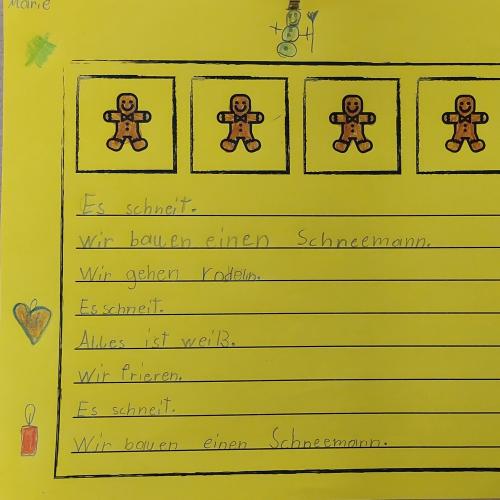 Marie
Es schneit.
Wir bauen einen Schneemann.
Wir gehen rodeln.
Es schneit.
Alles ist weiß.
Wir frieren.
Es schneit.
Wir bauen einen Schneemann.